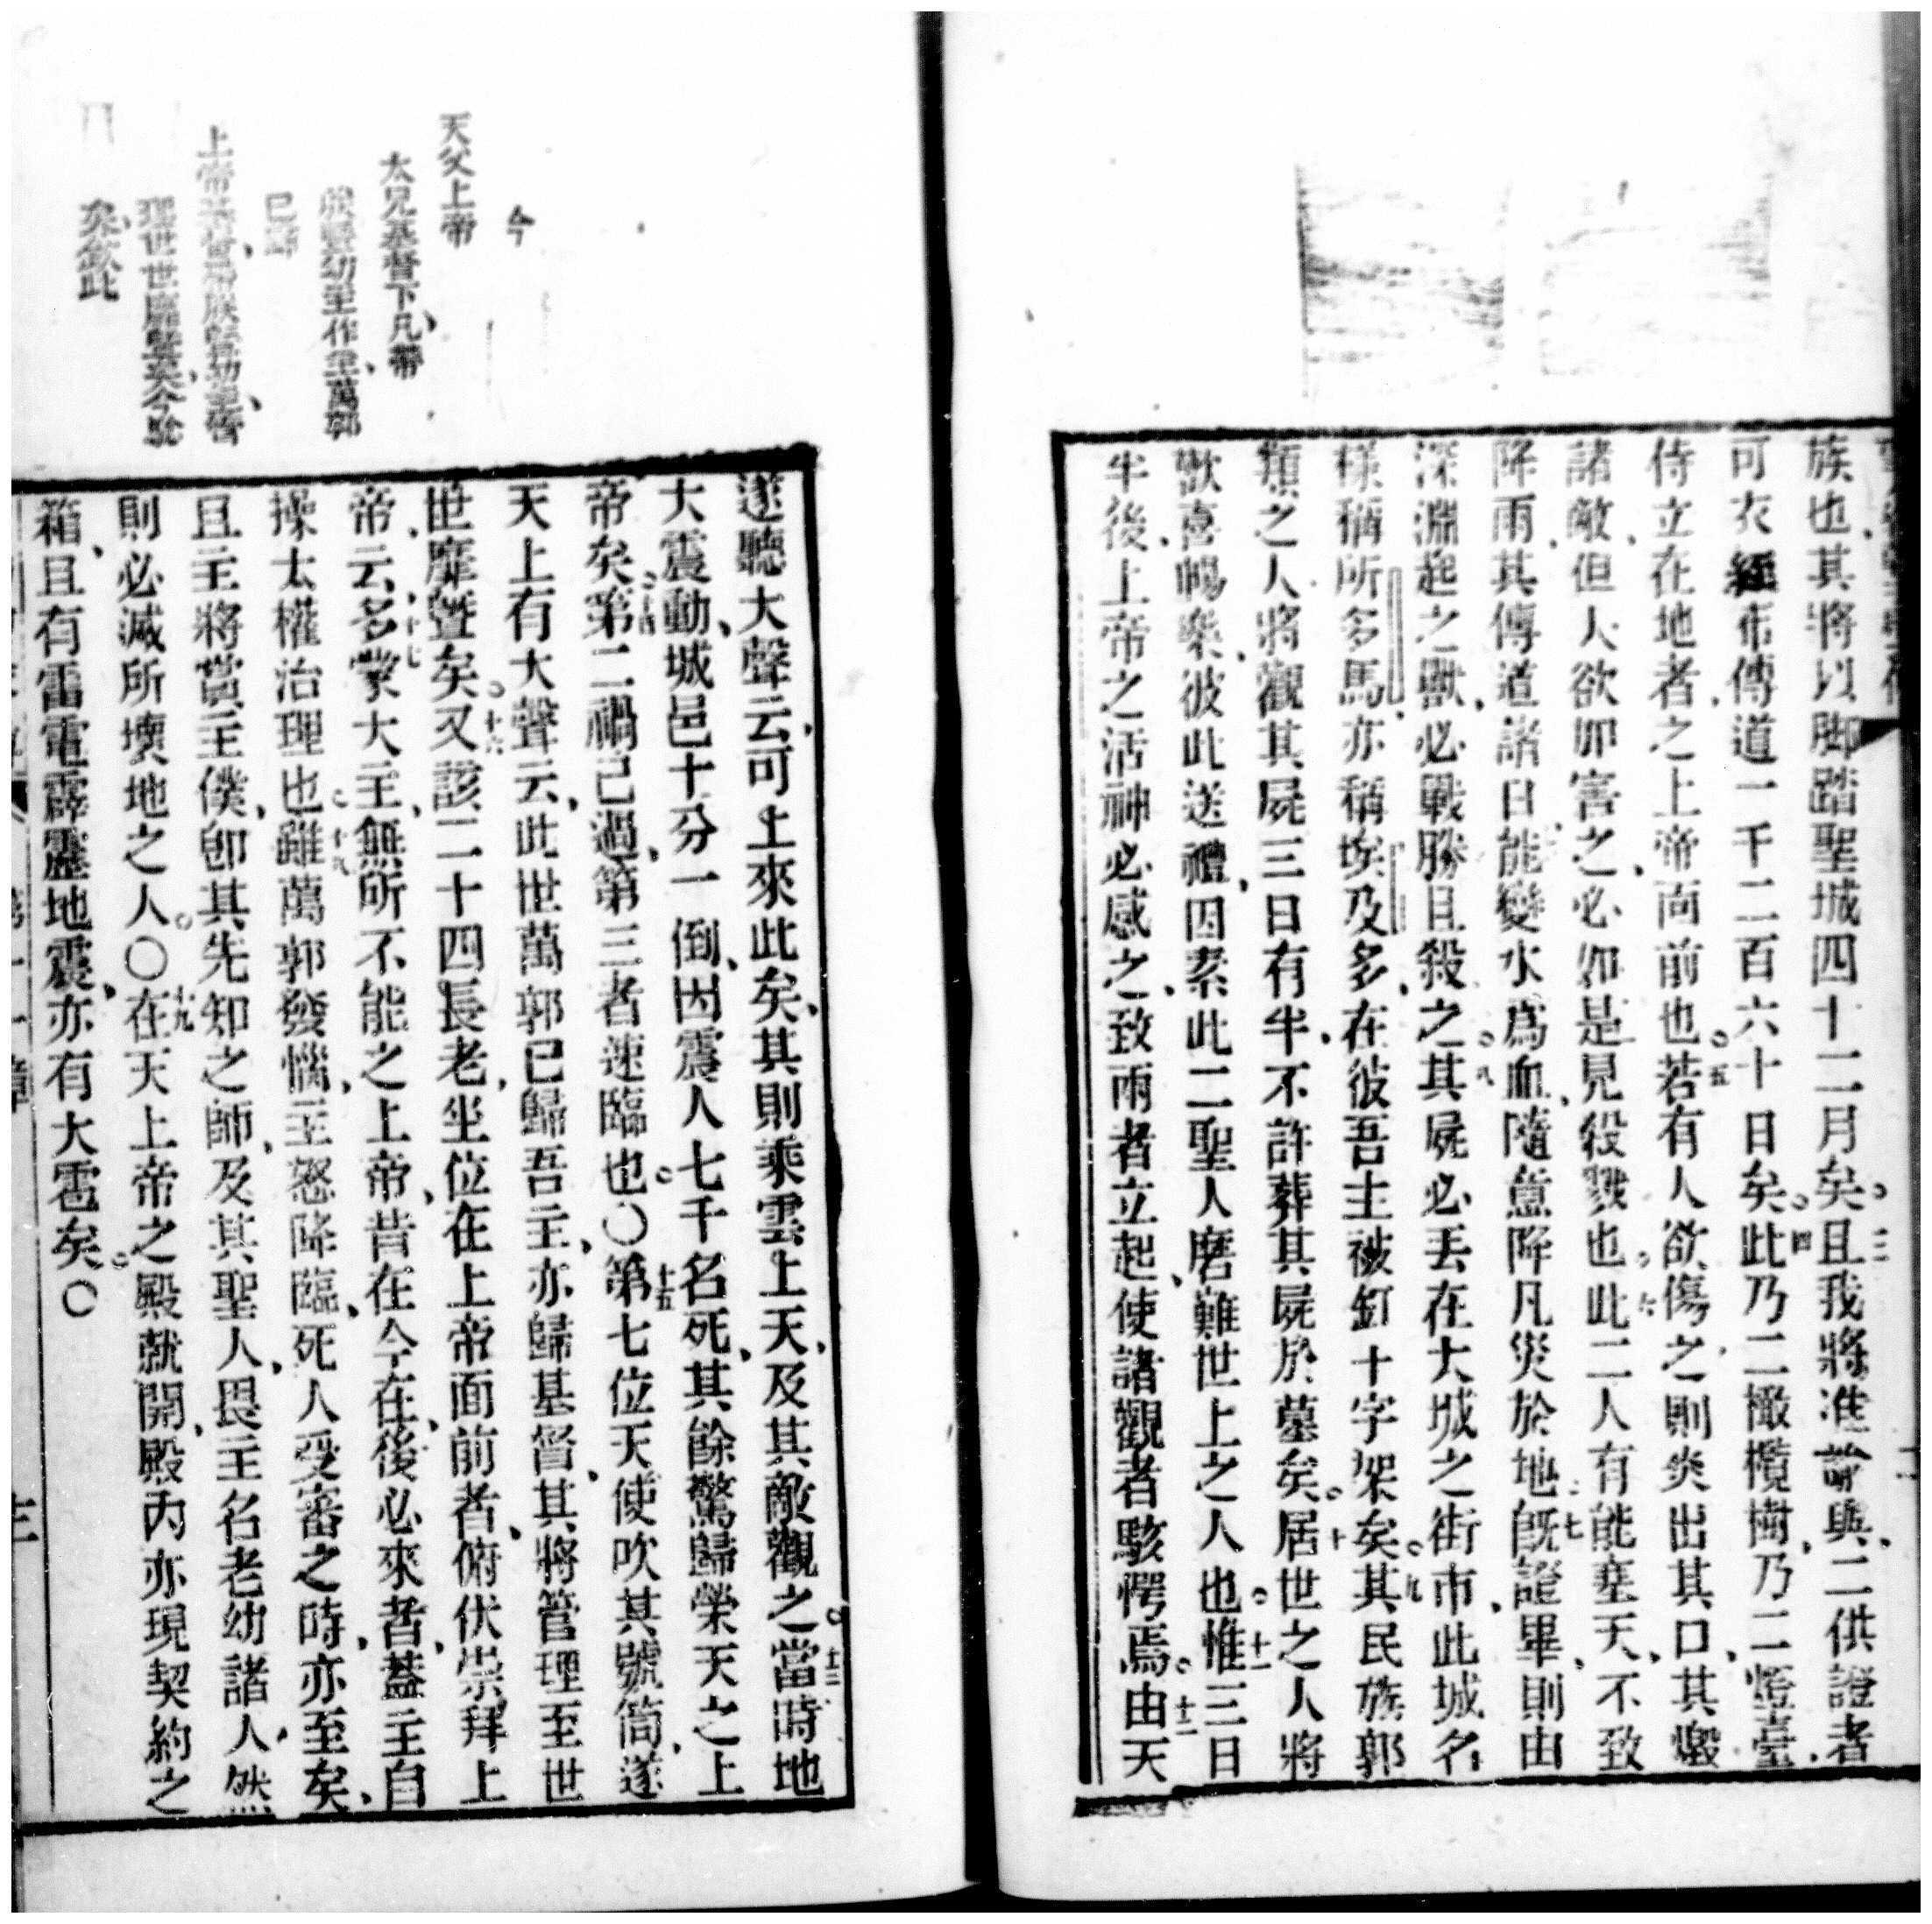 族也其將以脚踏聖城四十二月矣三且我將准諭與二供證者
可衣蔴布傳道一千二百六十日矣四此乃二橄欖樹乃二燈臺
侍立在地者之上帝面前也五若有人欲傷之則炎出其口其燬
諸敵但人欲如害之必如是見殺戮也六此二人有能塞天不致
降雨其傳道諸日能變水爲血隨意降凡災於地七既證畢則由
深淵起之獸必戰勝且殺之八其屍必丟在大城之街市此城名
樣稱所多馬亦稱埃及多在彼吾主被釘十字架矣九其民族郭
類之人將觀其屍三日有半不許葬其屍於墓矣十居世之人將
歡喜暢樂彼此送禮因素此二聖人磨難世上之人也十一惟三日
半後上帝之活神必感之致兩者立起使諸觀者駭愕焉十二由天
今
天父上帝
太兄基督下凡帶
朕暨幼主作主萬郭
已歸
上帝基督
理世世靡暨矣今驗
矣欽此
遂聽大聲云可上來此矣其則乘雲上天及其敵觀之十三當時地
大震動城邑十分一倒因震人七千名死其餘驚歸榮天之上
帝矣十四第二禍已過第三者速臨也〇十五第七位天使吹其號筒遂
天上有大聲云此世萬郭已歸吾主亦歸基督其將管理至世
世靡曁矣十六又該二十四長老坐位在上帝面前者俯伏崇拜上
帝云十七多蒙大主無所不能之上帝昔在今在後必來者葢主自
操太權治理也十八雖萬郭發惱主怒降臨死人受審之時亦至矣
且主將賞主僕卽其先知之師及其聖人畏主名老幼諸人然
則必滅所壞地之人〇十九在天上帝之殿就開殿內亦現契約之
箱且有雷電霹靂地震亦有大雹矣〇